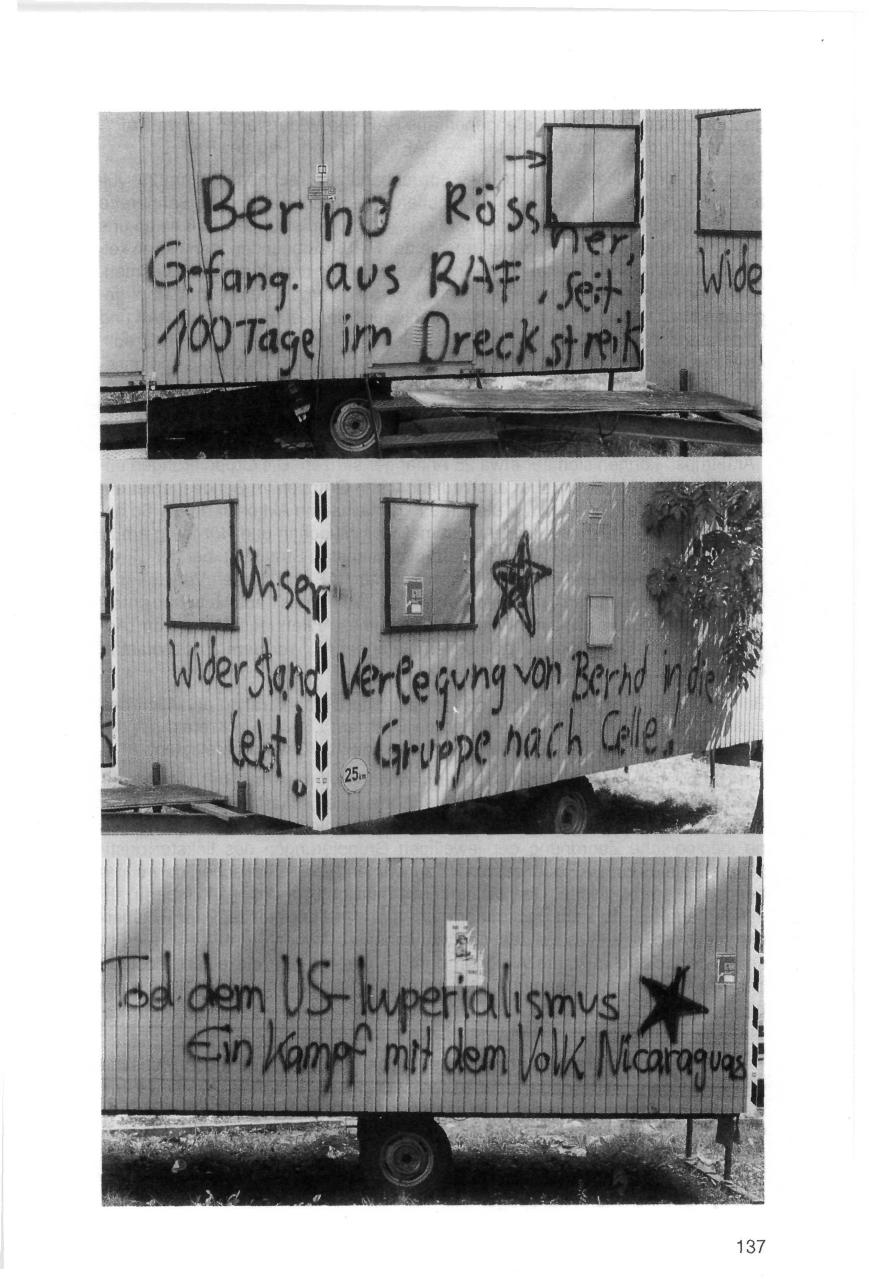 Bernd Rössner,
Gefang. aus RAF, seit
100 Tage im Dreckstreik
Wide
Unser
Widerstand
lebt!
Verlegung von Bernd in die
Gruppe nach Celle!
25 km
Tod dem US-Imperialismus
Ein Kampf mit dem Volk Nicaraguas
137